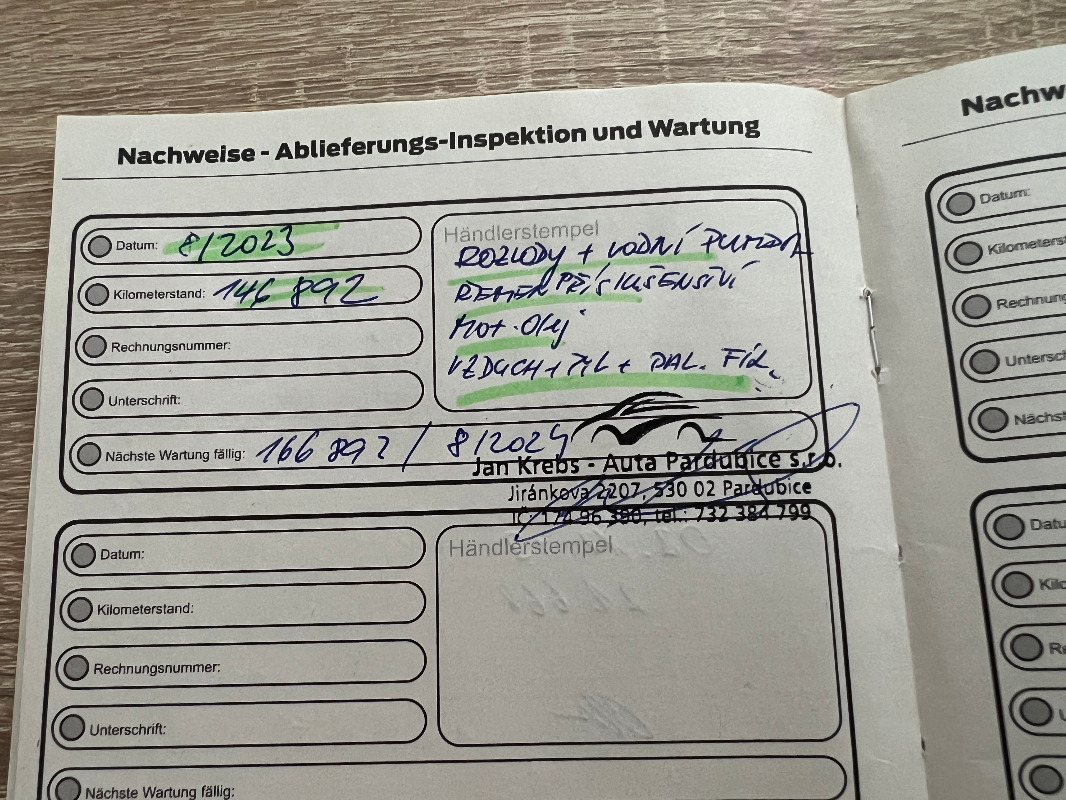 Nachweise - Ablieferungs-Inspektion und Wartung
Datum: 8/2023
Kilometerstand: 146 892
Rechnungsnummer:
Unterschrift:
Nächste Wartung fällig: 166 892 / 8/2024
Händlerstempel
ROZVODY + VODNÍ PUMPA
ŘEMEN PŘÍSLUŠENSTVÍ
Mot. Olej
VZDUCH + PYL + PAL. FIL.
Jan Krebs - Auta Pardubice s.r.o.
Jiránkova 2207, 530 02 Pardubice
IČ: 174 96 390, tel.: 732 384 799
Datum:
Kilometerstand:
Rechnungsnummer:
Unterschrift:
Nächste Wartung fällig:
Händlerstempel
Nachw
Datum:
Kilometerst
Rechnung
Untersch
Nächst
Datu
Kilo
Re
U